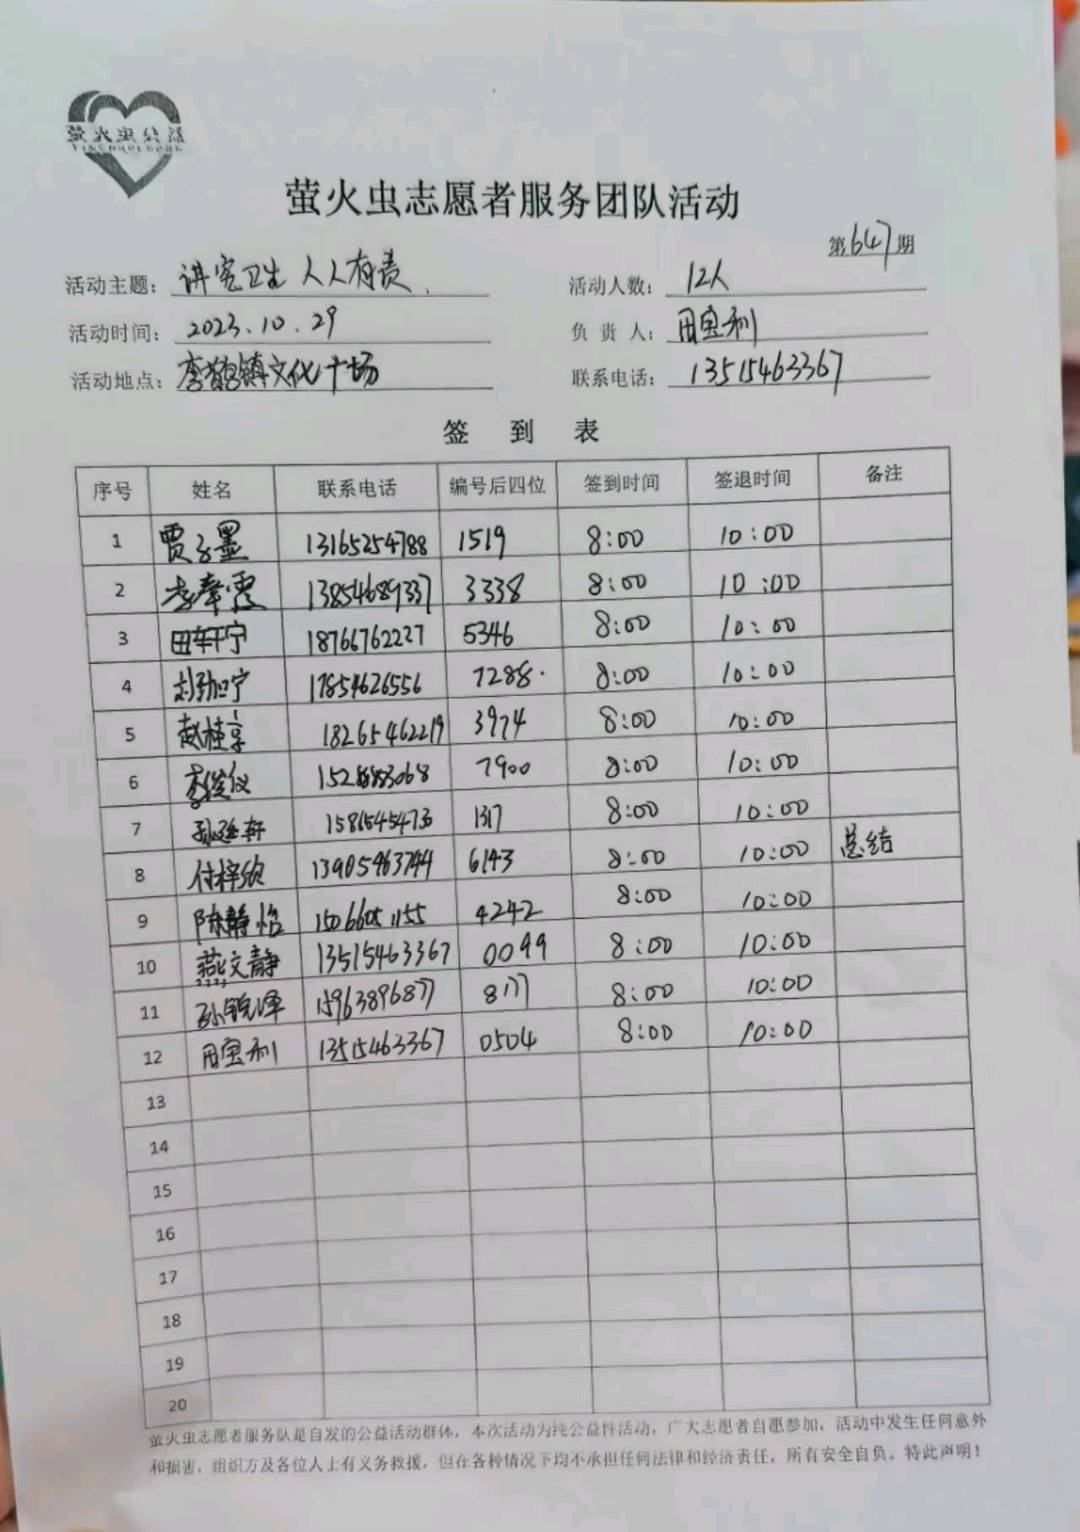 萤火虫公益
萤火虫志愿者服务团队活动
第647期
活动主题：讲究卫生 人人有责 活动人数：12人
活动时间：2023.10.29 负责人：宝利
活动地点：镇文化广场 联系电话：13515463367
签到表
序号 姓名 联系电话 编号后四位 签到时间 签退时间 备注
1 贾子墨 13165254788 1519 8:00 10:00
2 李奉霞 13854689337 3338 8:00 10:00
3 田轩宁 18766762227 5346 8:00 10:00
4 宁 17854626556 7288 8:00 10:00
5 赵桂京 18265462219 3974 8:00 10:00
6 李俊仪 7900 8:00 10:00
7 孙延轩 1317 8:00 10:00
8 付梓欣 13905463744 6143 8:00 10:00 总结
9 陈静怡 15066051155 4242 8:00 10:00
10 燕文静 13515463367 0099 8:00 10:00
11 孙锐泽 15963896877 8177 8:00 10:00
12 宝利 13515463367 0504 8:00 10:00
13
14
15
16
17
18
19
20
萤火虫志愿者服务队是自发的公益活动群体，本次活动为纯公益性活动，广大志愿者自愿参加，活动中发生任何意外
和损害，组织方及各位人士有义务救援，但在各种情况下均不承担任何法律和经济责任，所有安全自负。特此声明！